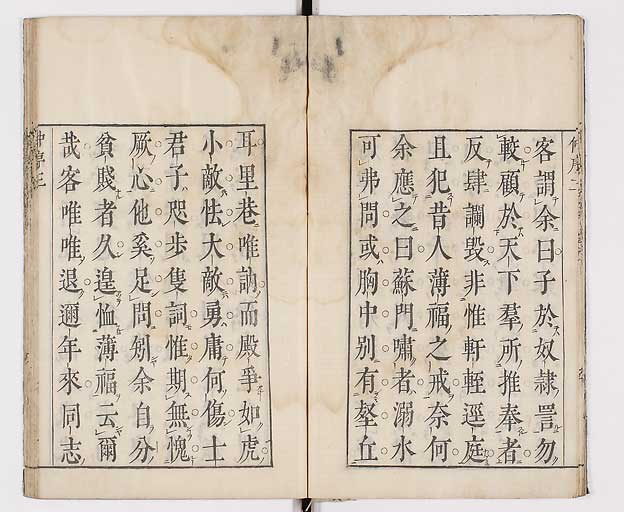 客謂余曰子於奴隷詈勿
較顧於天下羣所推奉者
反肆讕毀非惟軒輊逕庭
且犯昔人薄福之戒奈何
余應之曰蘇門嘯者溺水
可弗問或胸中別有壑丘
耳里巷唯訥而殿爭如虎
小敵怯大敵勇庸何傷士
君子咫步隻詞惟期無愧
厥心他奚足問矧余自分
貧賤者久遑恤薄福云爾
哉客唯唯退邇年來同志